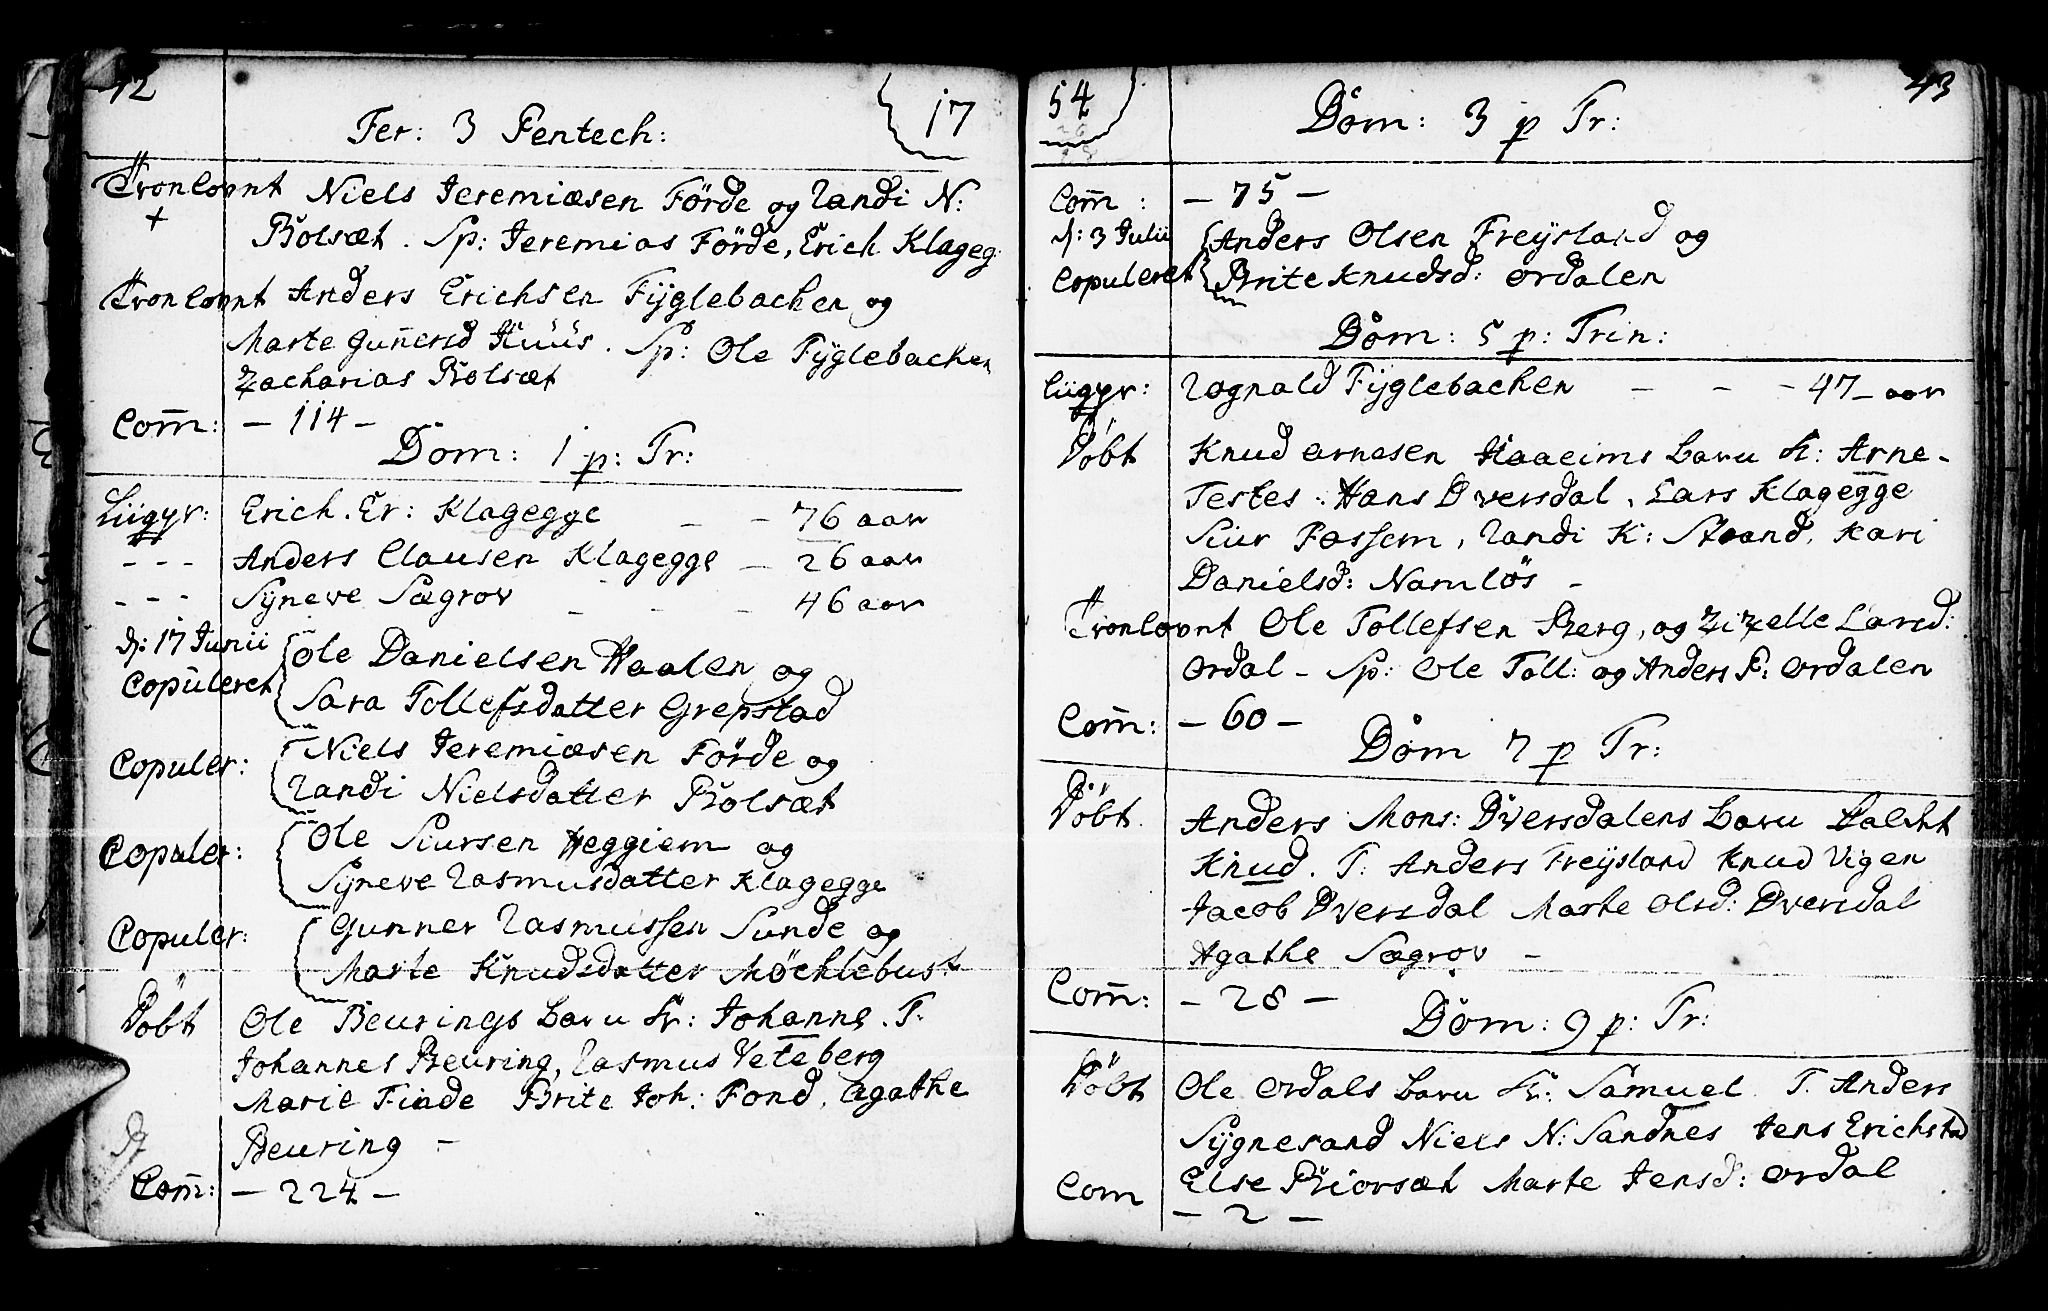 42
17
Fer: 3 Pentech:
Tronlovnt Niels Jeremiæsen Förde og Randi N:
+ Bolsæt. Sp: Jeremias Förde, Erich Klageg:
Tronlovnt Anders Erichsen Fyglebachen og
Marte Gun̄ersd Huus. Sp: Ole Fyglebachen
Zacharias Bolsæt
Com̄: – 114 –
Dom: 1 p: Tr:
Liigpr: Erich. Er: Klagegge – – 76 aar
- - - Anders Clausen Klagegge – 26 aar
- - - Syneve Sægrov – – – 46 aar
d: 17 Junii Ole Danielsen Haalen og
Copuleret Sara Tollefsdatter Grepstad
Copuler: Niels Jeremiæsen Förde og
Randi Nielsdatter Bolsæt
Copuler: Ole Siursen Heggiem og
Syneve Rasmusdatter Klagegge
Copuler: Gunner Rasmussen Sunde og
Marte Knudsdatter Möchlebust
Döbt Ole Beurings barn k: Johanne. T.
Johannes Beuring, Rasmus Veteberg
Marie Finde Brite Joh: Fond, Agathe
Beuring –
Com̄: – 224 –
54
43
Dom: 3 p Tr:
Com̄: – 75 –
d: 3 Julii Anders Olsen Freysland og
Copuleret Brite Knudsd: Ordalen
Dom: 5 p: Trin:
Liigpr: Rognald Fyglebachen – – – 47 – aar
Döbt Knud Arnesen Haaeims barn k: Arne –
Testes: Hans Dversdal, Lars Klagegge
Siur Fossem, Randi K: Strand, Kari
Danielsd: Namlös –
Tronlovnt Ole Tollefsen Berg, og Zizelle Larsd:
Ordal – Sp: Ole Toll: og Anders P: Ordalen
Com̄: – 60 –
Dom 7 p Tr:
Döbt. Anders Mons: Dversdalens barn kaldt
Knud. T. Anders Freysland Knud Vigen
Jacob Dversdal Marte Olsd: Dversdal
Agathe Sægrov –
Com̄: – 28 –
Dom: 9 p: Tr:
Döbt Ole Ordals barn k: Samuel. T. Anders
Sygnesand Niels N: Sandnes Jens Erichstad
Else Biorsæt Marte Jensd: Ordal
Com – 2 –